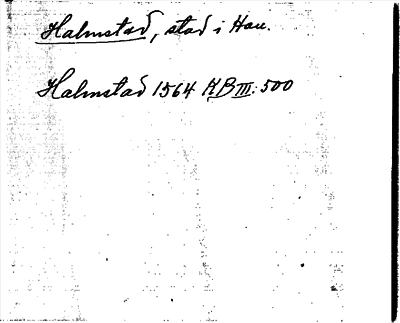 Halmstad, stad i Hall.
Halmstad 1564 KB III: 500